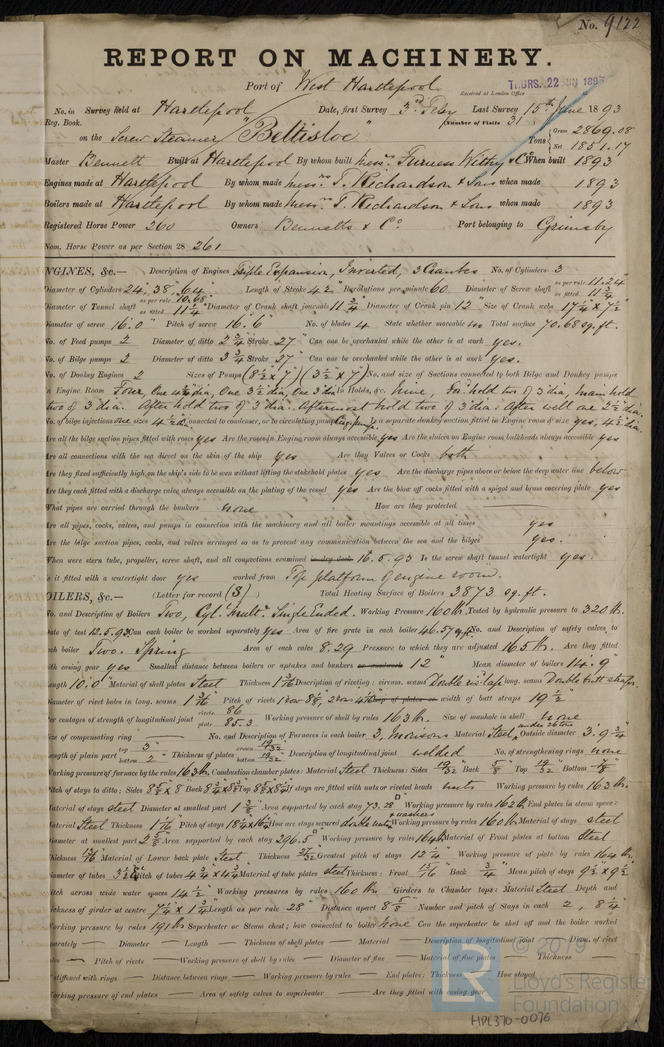 No. 9122
REPORT ON MACHINERY.
Port of West Hartlepool
Received at London Office
THURS. 22 JUN 1893
No. in Survey held at Hartlepool Date, first Survey 3rd Feby Last Survey 15th June 1893
Reg. Book. (Number of Visits 31)
on the Screw Steamer "Bellisloe" Tons Gross 2869.08 Net 1851.17
Master Bennett Built at Hartlepool By whom built Messrs Furness Withy & Co When built 1893
Engines made at Hartlepool By whom made Messrs T. Richardson & Sons when made 1893
Boilers made at Hartlepool By whom made Messrs T. Richardson & Sons when made 1893
Registered Horse Power 260 Owners Bennetts & Co Port belonging to Grimsby
Nom. Horse Power as per Section 28 261
NGINES, &c.— Description of Engines Triple Expansion, Inverted, 3 Cranks No. of Cylinders 3
Diameter of Cylinders 24", 38", 64" Length of Stroke 42" Revolutions per minute 60 Diameter of Screw shaft as per rule 11.24" as fitted 11 3/4"
Diameter of Tunnel shaft as per rule 10.68" as fitted 11 1/4" Diameter of Crank shaft journals 11 3/4" Diameter of Crank pin 12" Size of Crank webs 17 1/4 x 7 1/2
Diameter of screw 16.0" Pitch of screw 16.6" No. of blades 4 State whether moveable no Total surface 70.68 sq. ft.
No. of Feed pumps 2 Diameter of ditto 2 3/4" Stroke 27" Can one be overhauled while the other is at work yes.
No. of Bilge pumps 2 Diameter of ditto 3 3/4" Stroke 27" Can one be overhauled while the other is at work yes.
No. of Donkey Engines 2 Sizes of Pumps (8 1/2 x 7) (3 1/2 x 7) No. and size of Suctions connected to both Bilge and Donkey pumps
In Engine Room Four, One 4 1/2 dia, One 3 1/2 dia, One 3" dia In Holds, &c. Nine, For: hold two of 3" dia, Main hold
two of 3" dia. After hold two of 3" dia. Aftermost hold two of 3" dia: After well one 2 1/2" dia.
No. of bilge injections one sizes 4 1/2" Connected to condenser, or to circulating pump Is a separate donkey suction fitted in Engine room & size yes, 4 1/2 dia.
Are all the bilge suction pipes fitted with roses yes Are the roses in Engine room always accessible yes Are the sluices on Engine room bulkheads always accessible yes
Are all connections with the sea direct on the skin of the ship yes Are they Valves or Cocks both
Are they fixed sufficiently high on the ship's side to be seen without lifting the stokehold plates yes Are the discharge pipes above or below the deep water line below
Are they each fitted with a discharge valve always accessible on the plating of the vessel yes Are the blow off cocks fitted with a spigot and brass covering plate yes
What pipes are carried through the bunkers none How are they protected
Are all pipes, cocks, valves, and pumps in connection with the machinery and all boiler mountings accessible at all times yes
Are the bilge suction pipes, cocks, and valves arranged so as to prevent any communication between the sea and the bilges yes.
When were stern tube, propeller, screw shaft, and all connections examined in dry dock 16.5.93 Is the screw shaft tunnel watertight yes.
Is it fitted with a watertight door yes worked from Top platform of engine room.
OILERS, &c.— (Letter for record (S) ) Total Heating Surface of Boilers 3873 sq. ft.
No. and Description of Boilers Two, Cyl. Mult. Single Ended. Working Pressure 160 lb. Tested by hydraulic pressure to 320 lb.
Date of test 12.5.93 Can each boiler be worked separately yes Area of fire grate in each boiler 46.57 sq. ft. No. and Description of safety valves to
each boiler Two. Spring Area of each valve 8.29 Pressure to which they are adjusted 165 lb. Are they fitted
with easing gear yes Smallest distance between boilers or uptakes and bunkers or woodwork 12" Mean diameter of boilers 14.9
Length 10.0" Material of shell plates Steel Thickness 1 3/16 Description of riveting: circum. seams Double in lap long. seams Double butt straps.
Diameter of rivet holes in long. seams 1 3/16 Pitch of rivets 1 row 8 1/8, 2 rows 4 1/16 Lap of plates or width of butt straps 19 1/2"
Per centages of strength of longitudinal joint rivets 86 plate 85.3 Working pressure of shell by rules 163 lb. Size of manhole in shell none
Size of compensating ring No. and Description of Furnaces in each boiler 3, Morisons Material Steel, under 26 tons Outside diameter 3.9 3/4"
Length of plain part top 3" bottom 2" Thickness of plates crown 19/32 bottom 19/32 Description of longitudinal joint welded No. of strengthening rings none
Working pressure of furnace by the rules 163 lb. Combustion chamber plates: Material Steel Thickness: Sides 19/32" Back 5/8" Top 19/32" Bottom 7/8"
Pitch of stays to ditto: Sides 8 1/2 x 8 Back 8 3/4 x 8 1/4 Top 8 5/8 x 8 1/4 If stays are fitted with nuts or riveted heads nuts Working pressure by rules 163 lb.
Material of stays steel Diameter at smallest part 1 3/8" Area supported by each stay 73.28" Working pressure by rules 162 lb. End plates in steam space:
Material Steel Thickness 1 1/16 Pitch of stays 18 1/4 x 16 1/4 How are stays secured double nuts & washers Working pressure by rules 160 lb. Material of stays Steel
Diameter at smallest part 2 5/8" Area supported by each stay 296.5" Working pressure by rules 164 lb. Material of Front plates at bottom Steel
Thickness 15/16 Material of Lower back plate Steel Thickness 27/32" Greatest pitch of stays 13 1/4" Working pressure of plate by rules 164 lb.
Diameter of tubes 3 1/2" Pitch of tubes 4 3/4 x 4 3/4 Material of tube plates Steel Thickness: Front 15/16" Back 3/4" Mean pitch of stays 9 1/2 x 9 1/2"
Pitch across wide water spaces 14 1/2" Working pressures by rules 160 lb. Girders to Chamber tops: Material Steel Depth and
thickness of girder at centre 7 1/4 x 1 3/4 Length as per rule 28" Distance apart 8 5/8" Number and pitch of Stays in each 2, 8 1/4"
Working pressure by rules 191 lb. Superheater or Steam chest; how connected to boiler None Can the superheater be shut off and the boiler worked
separately — Diameter — Length — Thickness of shell plates — Material — Description of longitudinal joint — Diam. of rivet
— Pitch of rivets — Working pressure of shell by rules — Diameter of flue — Material of flue plates — Thickness —
If stiffened with rings — Distance between rings — Working pressure by rules — End plates: Thickness — How stayed
Working pressure of end plates — Area of safety valves to superheater — Are they fitted with easing gear
© 2019
Lloyd's Register
Foundation
HPL370-0076